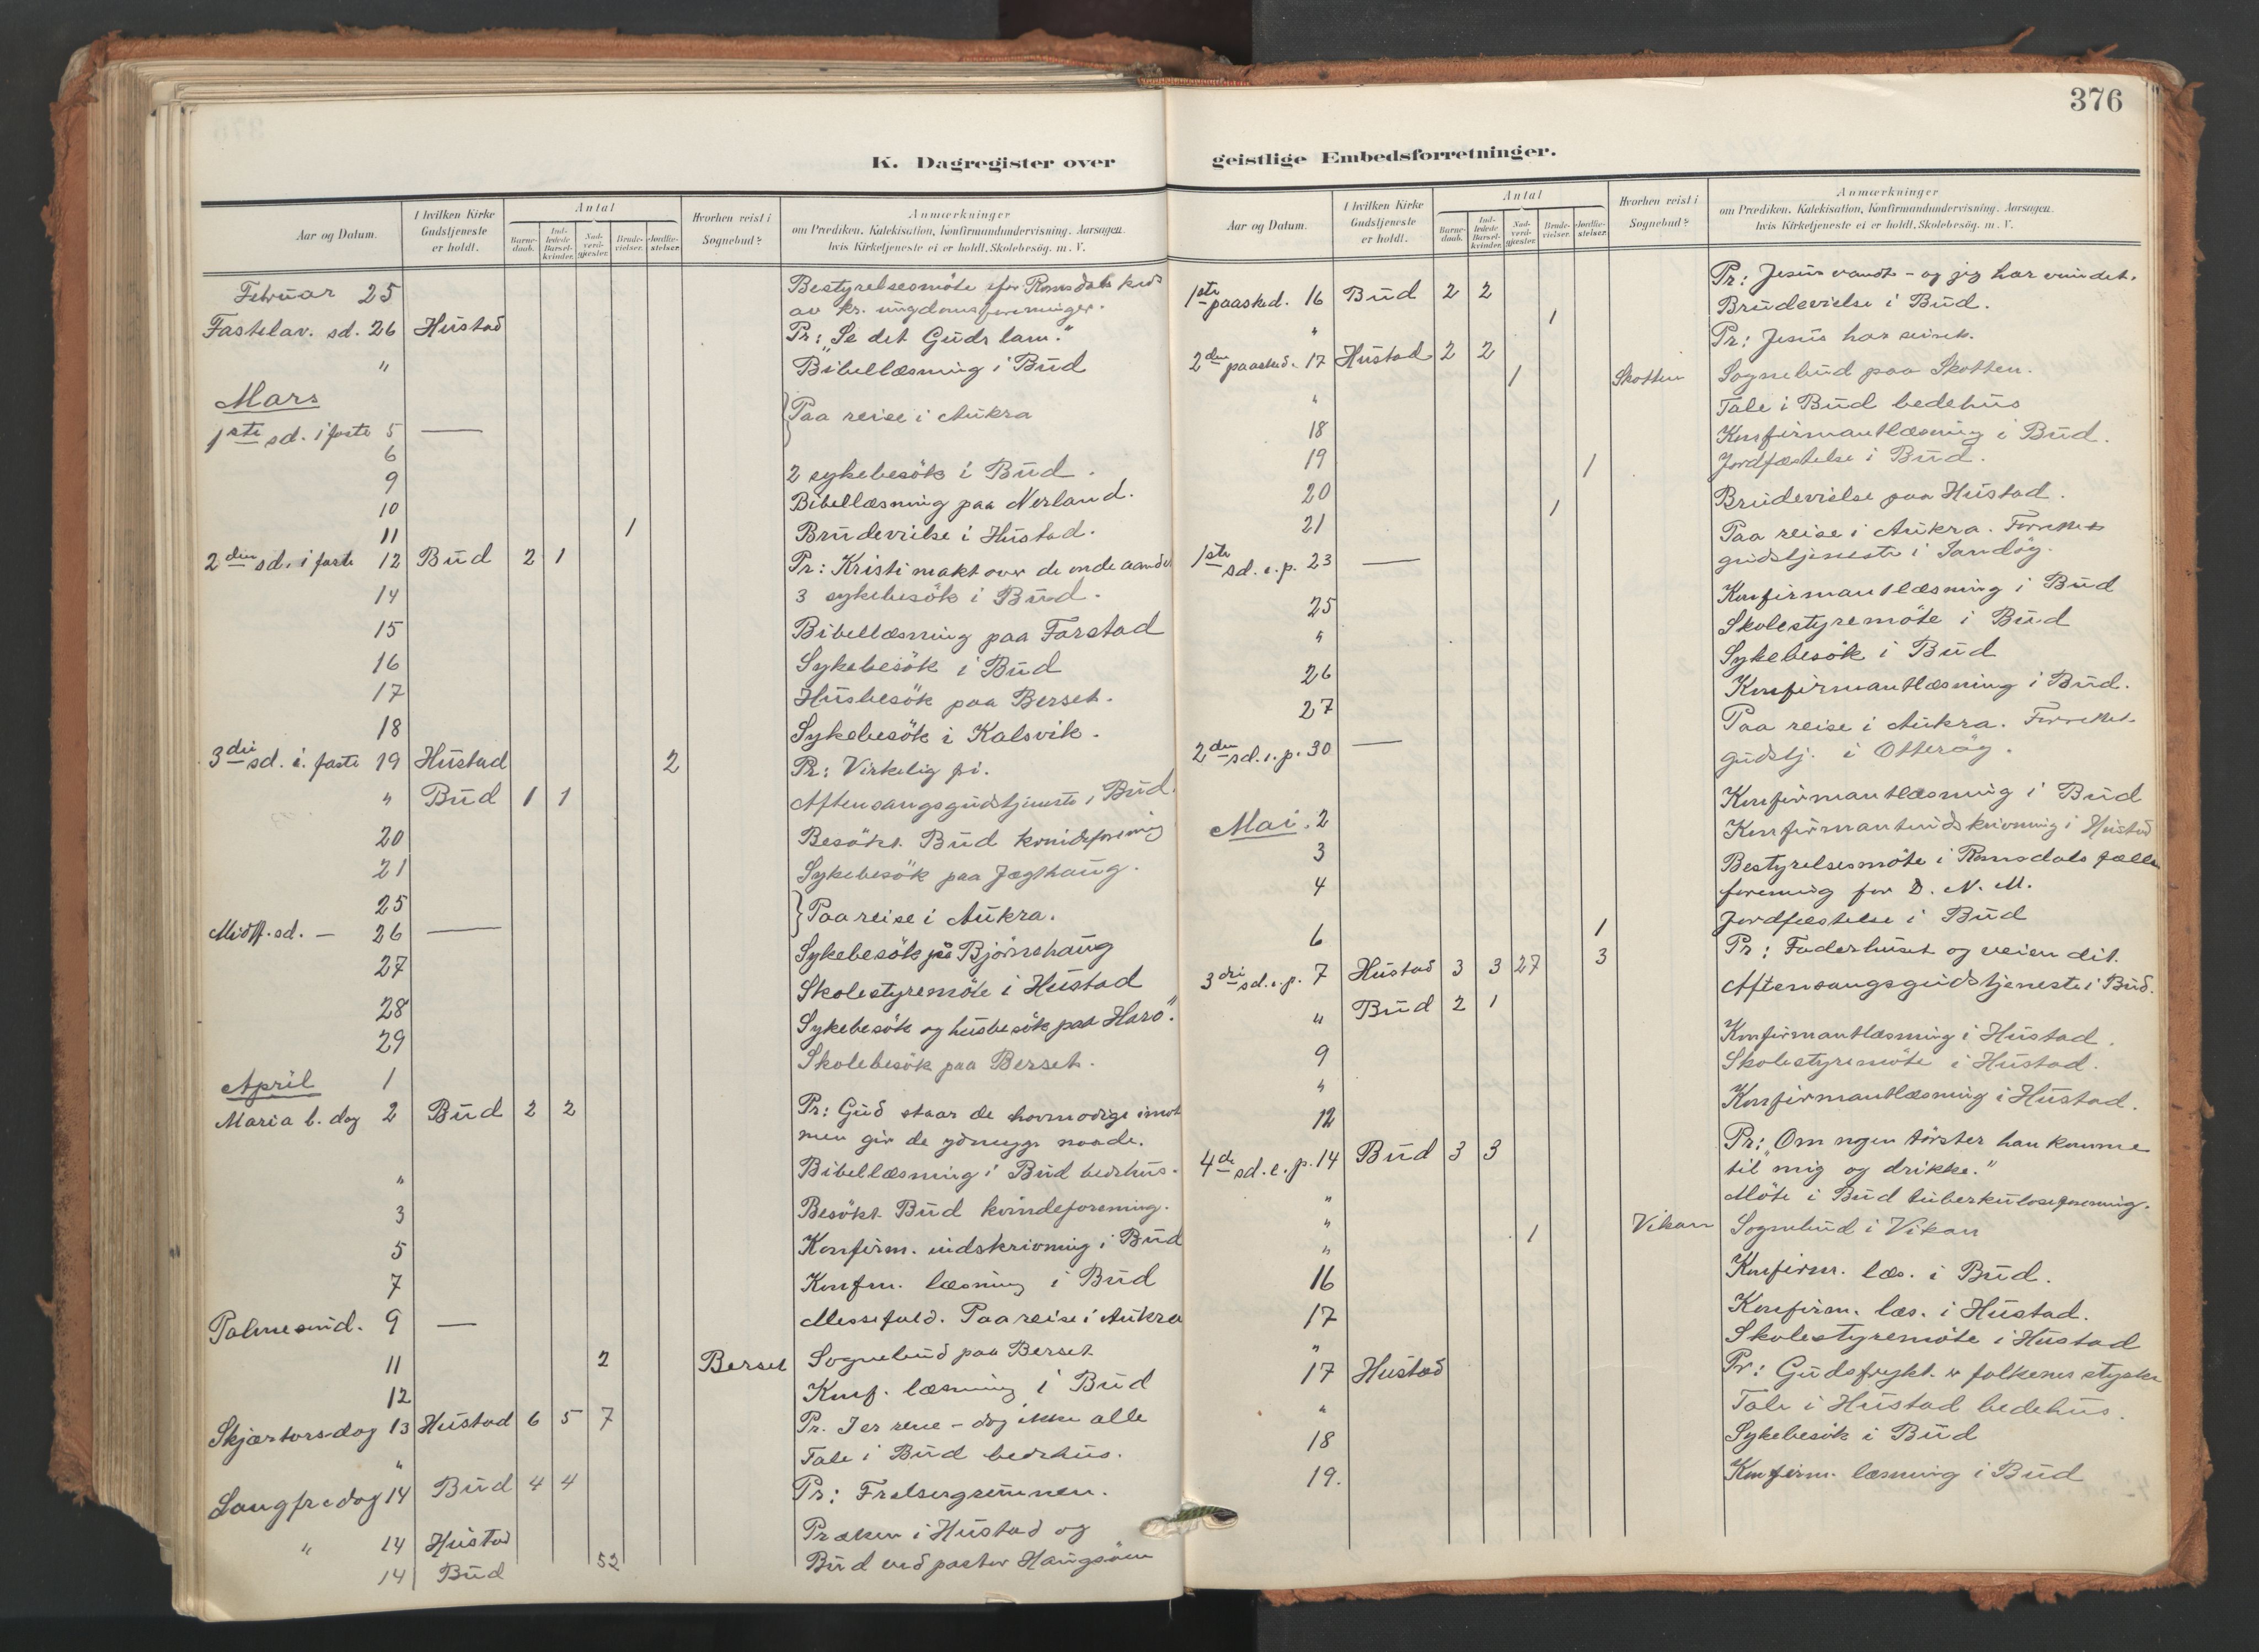 376
K. Dagregister over
Aar og Datum. I hvilken Kirke Gudstjeneste er holdt. Antal Barnedaab. Indledede Barselkvinder. Nadverdgjæster. Brudevielser. Jordfæstelser. Hvorhen reist i Sognebud? Anmærkninger om Prædiken, Katekisation, Konfirmandundervisning, Aarsagen, hvis Kirketjeneste ei er holdt, Skolebesøg. m. V.
Februar 25 Bestyrelsesmöte for Romsdals kreds
av kr. ungdomsforeninger.
Fastelav. sd. 26 Hustad Pr: "Se det Guds lam."
" Bibellæsning i Bud
Mars
1ste sd. i faste 5 — } Paa reise i Aukra
6
9 2 sykebesök i Bud.
10 Bibellæsning paa Nerland.
11 1 Brudevielse i Hustad.
2den sd. i faste 12 Bud 2 1 Pr: Kristi makt over de onde aander
14 3 sykebesök i Bud.
15 Bibellæsning paa Farstad
16 Sykebesök i Bud
17 Husbesök paa Berset.
18 Sykebesök i Kalsvik.
3die sd. i. faste 19 Hustad 2 Pr: Virkelig fri.
" Bud 1 1 Aftensangsgudstjeneste i Bud.
20 Besökt Bud kvindeforening
21 Sykebesök paa Jægthaug.
25 } Paa reise i Aukra.
Midf. sd. — 26 —
27 Sykebesök på Bjørnshaug
Skolestyremöte i Hustad
28 Sykebesök og husbesök paa Harö.
29 Skolebesök paa Berset.
April 1
Maria b. dag 2 Bud 2 2 Pr: Gud staar de hovmodige imot
men gir de ydmyge naade.
" Bibellæsning i Bud bedehus.
3 Besökt Bud kvindeforening.
5 Konfirm. indskrivning i Bud
7 Konfm. læsning i Bud
Palmesønd. 9 — Messefald. Paa reise i Aukra
11 2 Berset Sognebud paa Berset
12 Konf. læsning i Bud
Skjærtorsdag 13 Hustad 6 5 7 Pr. I er rene – dog ikke alle
" Tale i Bud bedehus.
Langfredag 14 Bud 4 4 Pr: Frelsergrunnen.
" 14 Hustad Præken i Hustad og
14 Bud 52 Bud ved pastor Haugsöen
geistlige Embedsforretninger.
Aar og Datum. I hvilken Kirke Gudstjeneste er holdt. Antal Barnedaab. Indledede Barselkvinder. Nadverdgjæster. Brudevielser. Jordfæstelser. Hvorhen reist i Sognebud? Anmærkninger om Prædiken, Katekisation, Konfirmandundervisning, Aarsagen, hvis Kirketjeneste ei er holdt, Skolebesøg. m. V.
1ste paasked. 16 Bud 2 2 Pr: Jesus vandt – og jeg har vundet.
" 1 Brudevielse i Bud.
2den paasked. 17 Hustad 2 2 Pr: Jesus har seiret.
" 1 Skotten Sognebud paa Skotten.
Tale i Bud bedehus
18 Konfirmantlæsning i Bud.
19 1 Jordfæstelse i Bud.
20 1 Brudevielse paa Hustad.
21 Paa reise i Aukra. Forrettet
1ste sd. e. p. 23 — gudstjeneste i Sandöy.
25 Konfirmantlæsning i Bud
" Skolestyremöte i Bud
26 Sykebesök i Bud
27 Konfirmantlæsning i Bud.
Paa reise i Aukra. Forrettet
2den sd. e. p. 30 — gudstj. i Otteröy.
Mai. 2 Konfirmantlæsning i Bud
3 Konfirmantindskrivning i Hustad
4 Bestyrelsesmöte i Romsdals fælles
forening for D. N. M.
6 1 Jordfæstelse i Bud
3die sd. e. p. 7 Hustad 3 3 27 3 Pr: Faderhuset og veien dit.
" Bud 2 1 Aftensangsgudstjeneste i Bud.
9 Konfirmantlæsning i Hustad.
" Skolestyremöte i Hustad.
12 Konfirmantlæsning i Hustad.
4de sd. e. p. 14 Bud 3 3 Pr: "Om nogen törster han komme
til mig og drikke."
" Möte i Bud tuberkuloseforening.
" 1 Vikan Sognebud i Vikan
"
16 Konfirm. læs. i Bud.
17 Konfirm. læs. i Hustad.
" Skolestyremöte i Hustad
17 Hustad Pr: Gudsfrykt er folkenes styrke
" Tale i Hustad bedehus.
18 Sykebesök i Bud
19. Konfirm. læsning i Bud